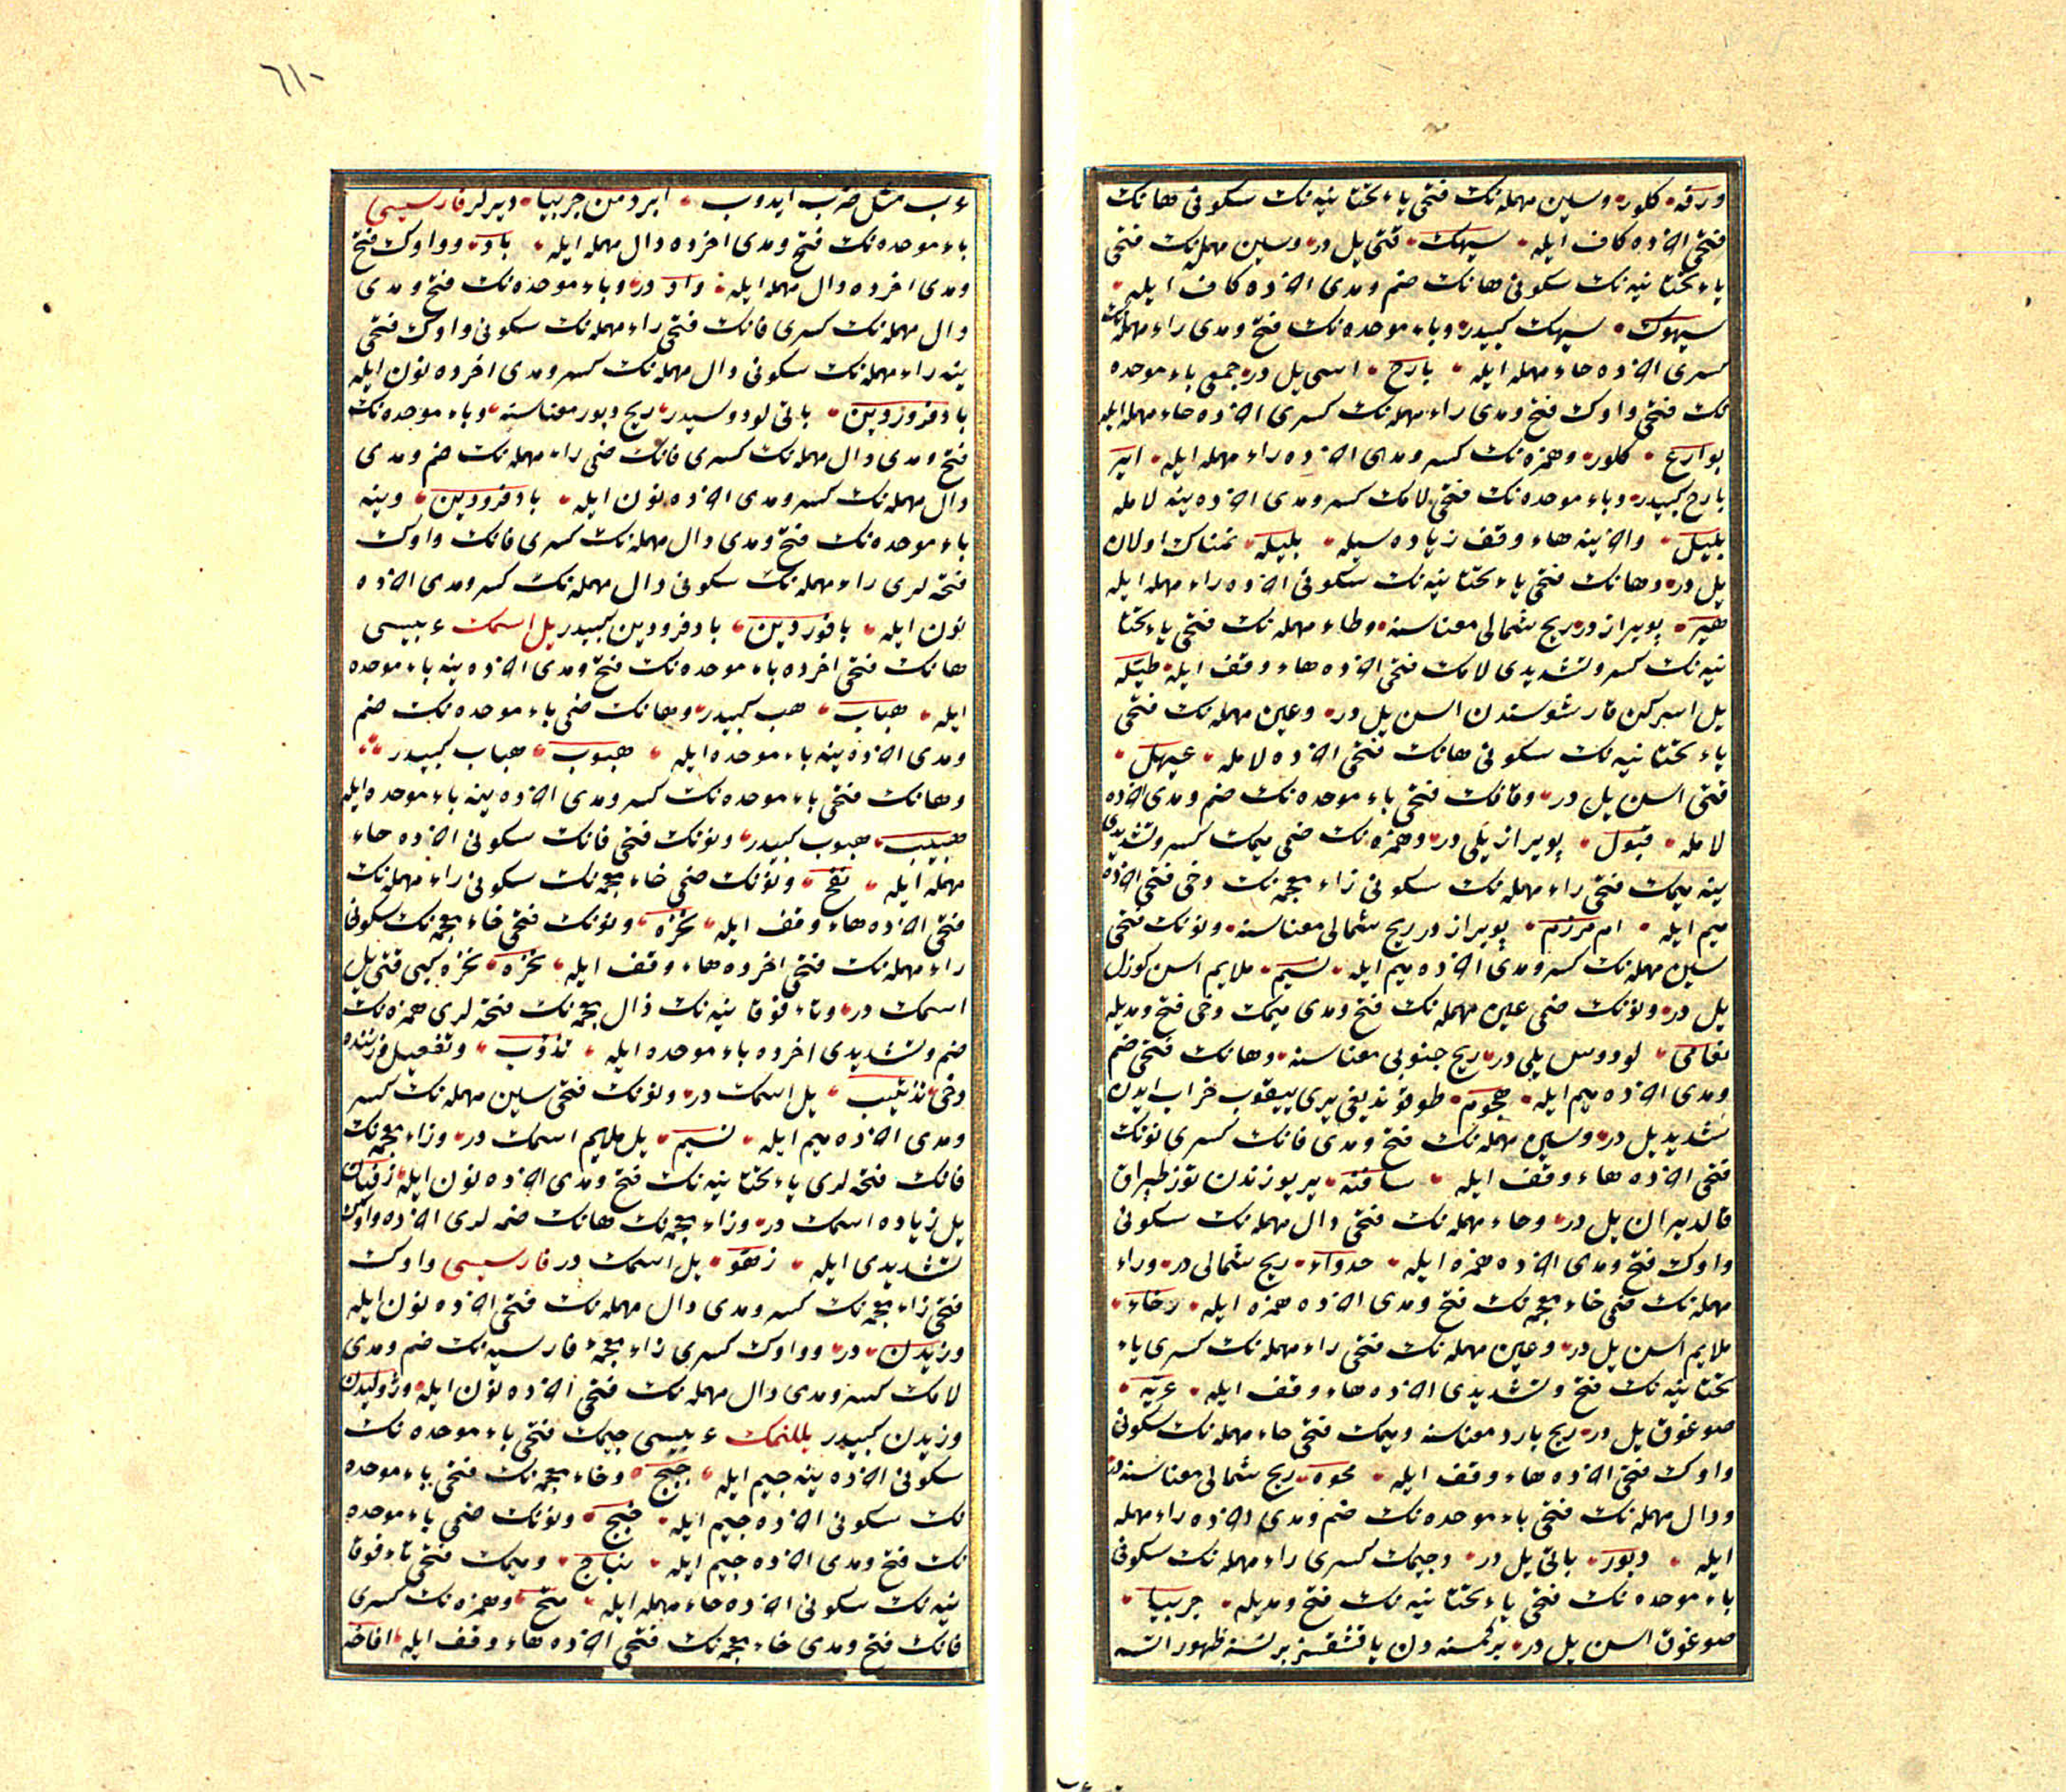 ورقه كلور وسين مهمله نك فتحى ياء تحتانيه نك سكونى هانك
فتحى اخرده كاف ايله سيهك قتى يل در وسين مهمله نك فتحى
ياء تحتانيه نك سكونى هانك ضم ومدى اخرده كاف ايله
سيهوك سيهك كبيدر وباء موحده نك فتح ومدى راء مهمله نك
كسرى اخرده حاء مهمله ايله بارح اسى يل در جمعى باء موحده
نك فتحى واوك فتح ومدى راء مهمله نك كسرى اخرده حاء مهمله ايله
بوارح كلور وهمزه نك كسر ومدى اخرده راء مهمله ايله اير
بارح كبيدر وباء موحده نك فتحى لامك كسر ومدى اخرده ينه لامله
بليل واخرينه هاء وقف زياده سيله بليله نمناك اولان
يل در وهانك فتحى ياء تحتانيه نك سكونى اخرده راء مهمله ايله
هير پويراز در ريح شمالى معناسنه وطاء مهمله نك فتحى ياء تحتا
نيه نك كسر وتشديدى لامك فتحى اخرده هاء وقف ايله طيّله
يل اسركن قارشوسندن اسن يل در وعين مهمله نك فتحى
ياء تحتانيه نك سكونى هانك فتحى اخرده لامله عيهل
قتى اسن يل در وقافك فتحى باء موحده نك ضم ومدى اخرده
لامله قبول پويراز يلى در وهمزه نك ضمى ميمك كسر وتشديدى
ينه ميمك فتحى راء مهمله نك سكونى زاء معجمه نك دخى فتحى اخرده
ميم ايله ام مرزم پويراز در ريح شمالى معناسنه ونونك فتحى
سين مهمله نك كسر ومدى اخرده ميم ايله نسيم ملايم اسن كوزل
يل در ونونك ضمى عين مهمله نك فتح ومدى ميمك دخى فتح ومديله
نعامى لودوس يلى در ريح جنوبى معناسنه وهانك فتحى جيمك ضم
ومدى اخرده ميم ايله هجوم طوقوندیغى يرى ييقوب خراب ايدن
شديد يل در وسين مهمله نك فتح ومدى فانك كسرى نونك
فتحى اخرده هاء وقف ايله سافنه ير يوزندن توز طپراق
قالديران يل در وحاء مهمله نك فتحى دال مهمله نك سكونى
واوك فتح ومدى اخرده همزه ايله حدواء ريح شمالى در وراء
مهمله نك ضمى خاء معجمه نك فتح ومدى اخرده همزه ايله رخاء
ملايم اسن يل در وعين مهمله نك فتحى راء مهمله نك كسرى ياء
تحتانيه نك فتح وتشديدى اخرده هاء وقف ايله عريّه
صوغوق يل در ريح بارد معناسنه وميمك فتحى حاء مهمله نك سكونى
واوك فتحى اخرده هاء وقف ايله محوه ريح شمالى معناسنه در
ودال مهمله نك فتحى باء موحده نك ضم ومدى اخرده راء مهمله
ايله دبور باتى يل در وجيمك كسرى راء مهمله نك سكونى
باء موحده نك فتحى ياء تحتانيه نك فتح ومديله جربيا
صوغوق اسن يل در بر كمسنه دن ياقشقسز بر نسنه ظهور اتسه
٦١٠
عرب مثل ضرب ايدوب ابرد من جربيا ديرلر فارسيسى
باء موحده نك فتح ومدى اخرده دال مهمله ايله باد وواوك فتح
ومدى اخرده دال مهمله ايله واد در وباء موحده نك فتح ومدى
دال مهمله نك كسرى فانك فتحى راء مهمله نك سكونى واوك فتحى
ينه راء مهمله نك سكونى دال مهمله نك كسر ومدى اخرده نون ايله
بادفرورdين باتى لودوسيدر ريح دبور معناسنه وباء موحده نك
فتح ومدى دال مهمله نك كسرى فانك ضمى راء مهمله نك ضم ومدى
دال مهمله نك كسر ومدى اخرده نون ايله بادفرودين وينه
باء موحده نك فتح ومدى دال مهمله نك كسرى فانك واوك
فتحه لرى راء مهمله نك سكونى دال مهمله نك كسر ومدى اخرده
نون ايله بادفوردين بادفرودين كبيدر يل اسمك عربيسى
هانك فتحى اخرده باء موحده نك فتح ومدى اخرده ينه باء موحده
ايله هباب هب كبيدر وهانك ضمى باء موحده نك ضم
ومدى اخرده ينه باء موحده ايله هبوب هباب كبيدر
وهانك فتحى باء موحده نك كسر ومدى اخرده ينه باء موحده ايله
هبيب هبوب كبيدر ونونك فتحى فانك سكونى اخرده حاء
مهمله ايله نفح ونونك ضمى خاء معجمه نك سكونى راء مهمله نك
فتحى اخرده هاء وقف ايله نخره ونونك فتحى خاء معجمه نك سكونى
راء مهمله نك فتحى اخرده هاء وقف ايله نخره نخره كبى قتى يل
اسمك در وتاء فوقانيه نك ذال معجمه نك فتحه لرى همزه نك
ضم وتشديدى اخرده باء موحده ايله تذؤب وتفعيل وزننده
دخى تذئيب يل اسمك در ونونك فتحى سين مهمله نك كسر
ومدى اخرده ميم ايله نسيم يل ملايم اسمك در وزاء معجمه نك
فانك فتحه لرى ياء تحتانيه نك فتح ومدى اخرده نون ايله زفيان
يل زياده اسمك در وزاء معجمه نك هانك ضمه لرى اخرده واوك
تشديدى ايله زهوّ يل اسمك در فارسيسى واوك
فتحى زاء معجمه نك كسر ومدى دال مهمله نك فتحى اخرده نون ايله
وزيدن در وواوك كسرى زاء معجمهٔ فارسيه نك ضم ومدى
لامك كسر ومدى دال مهمله نك فتحى اخرده نون ايله وژوليدن
وزيدن كبيدر يللنمك عربيسى جيمك فتحى باء موحده نك
سكونى اخرده ينه جيم ايله جبج وخاء معجمه نك فتحى باء موحده
نك سكونى اخرده جيم ايله خبج ونونك ضمى باء موحده
نك فتح ومدى اخرده جيم ايله نباج وميمك فتحى تاء فوقا
نيه نك سكونى اخرده حاء مهمله ايله متح وهمزه نك كسرى
فانك فتح ومدى خاء معجمه نك فتحى اخرده هاء وقف ايله افاخه